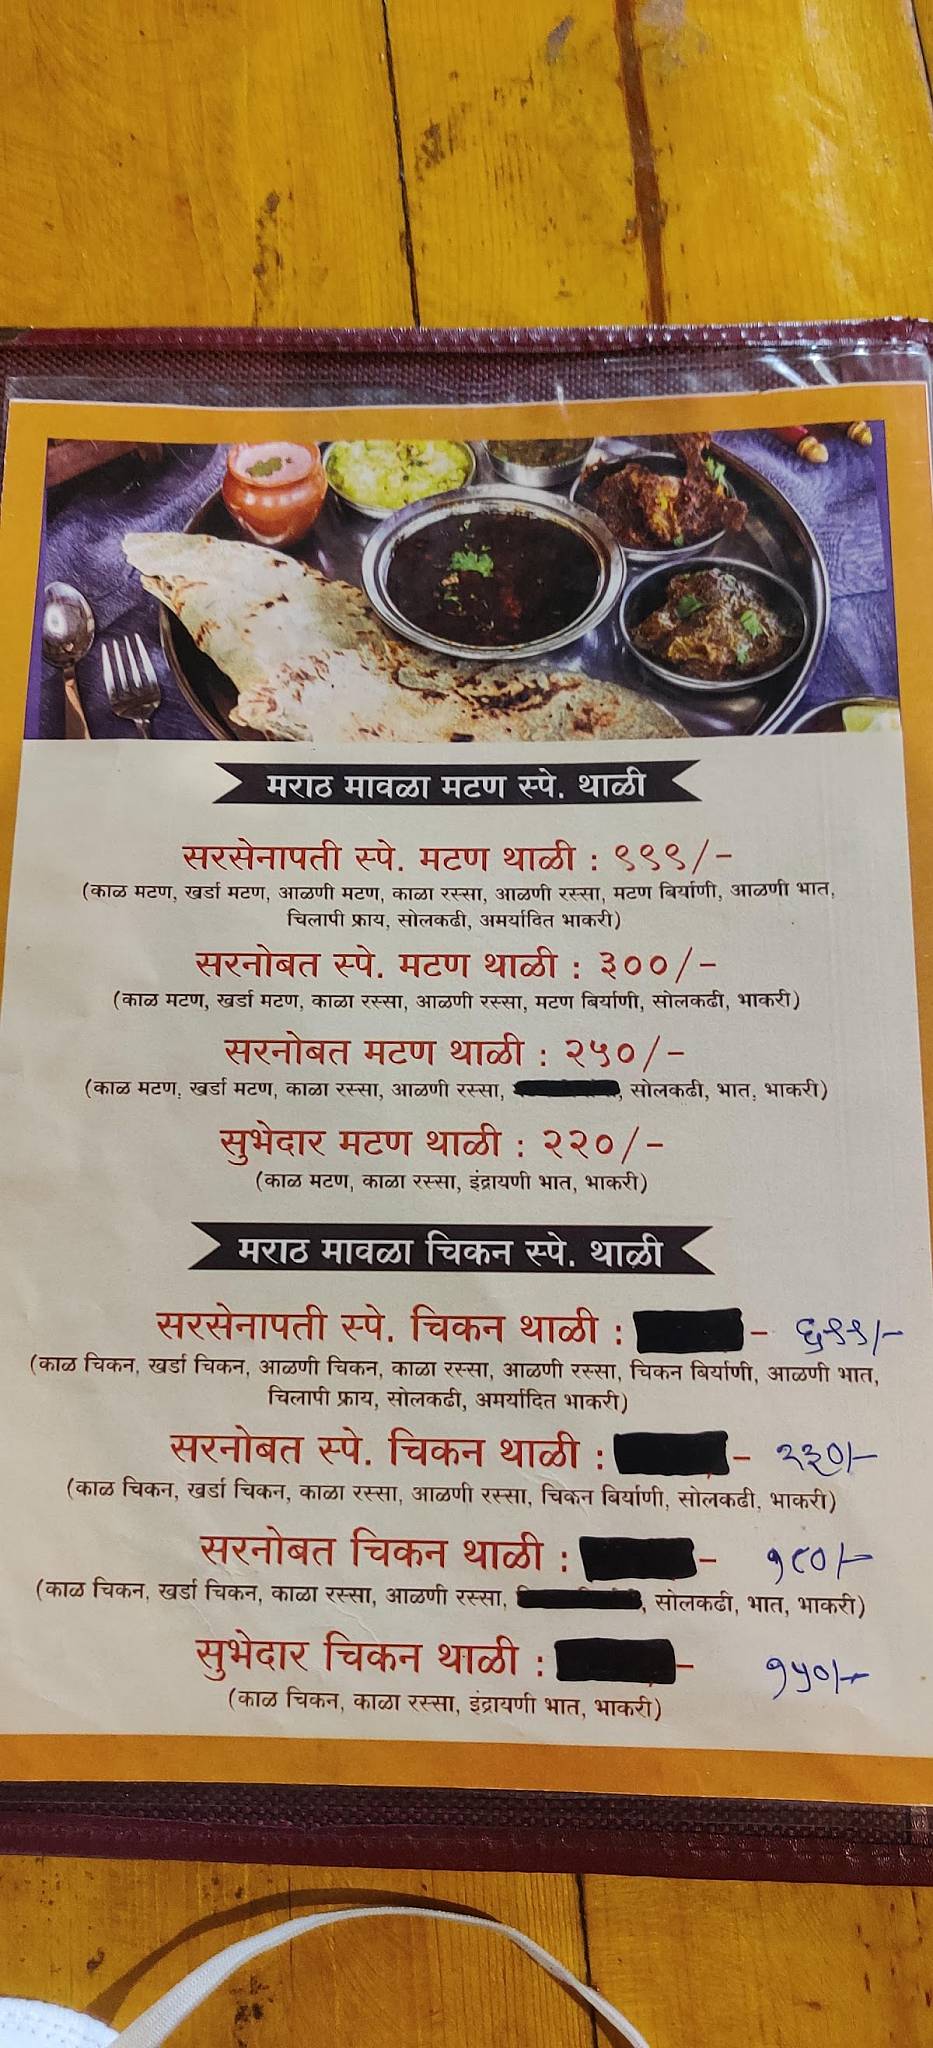 मराठ मावळा मटण स्पे. थाळी
सरसेनापती स्पे. मटण थाळी : ९९९/-
(काळ मटण, खर्डा मटण, आळणी मटण, काळा रस्सा, आळणी रस्सा, मटण बिर्याणी, आळणी भात,
चिलापी फ्राय, सोलकढी, अमर्यादित भाकरी)
सरनोबत स्पे. मटण थाळी : ३००/-
(काळ मटण, खर्डा मटण, काळा रस्सा, आळणी रस्सा, मटण बिर्याणी, सोलकढी, भाकरी)
सरनोबत मटण थाळी : २५०/-
(काळ मटण, खर्डा मटण, काळा रस्सा, आळणी रस्सा, , सोलकढी, भात, भाकरी)
सुभेदार मटण थाळी : २२०/-
(काळ मटण, काळा रस्सा, इंद्रायणी भात, भाकरी)
मराठ मावळा चिकन स्पे. थाळी
सरसेनापती स्पे. चिकन थाळी : - ६९९/-
(काळ चिकन, खर्डा चिकन, आळणी चिकन, काळा रस्सा, आळणी रस्सा, चिकन बिर्याणी, आळणी भात,
चिलापी फ्राय, सोलकढी, अमर्यादित भाकरी)
सरनोबत स्पे. चिकन थाळी : - २३०/-
(काळ चिकन, खर्डा चिकन, काळा रस्सा, आळणी रस्सा, चिकन बिर्याणी, सोलकढी, भाकरी)
सरनोबत चिकन थाळी : - १८०/-
(काळ चिकन, खर्डा चिकन, काळा रस्सा, आळणी रस्सा, , सोलकढी, भात, भाकरी)
सुभेदार चिकन थाळी : - १५०/-
(काळ चिकन, काळा रस्सा, इंद्रायणी भात, भाकरी)